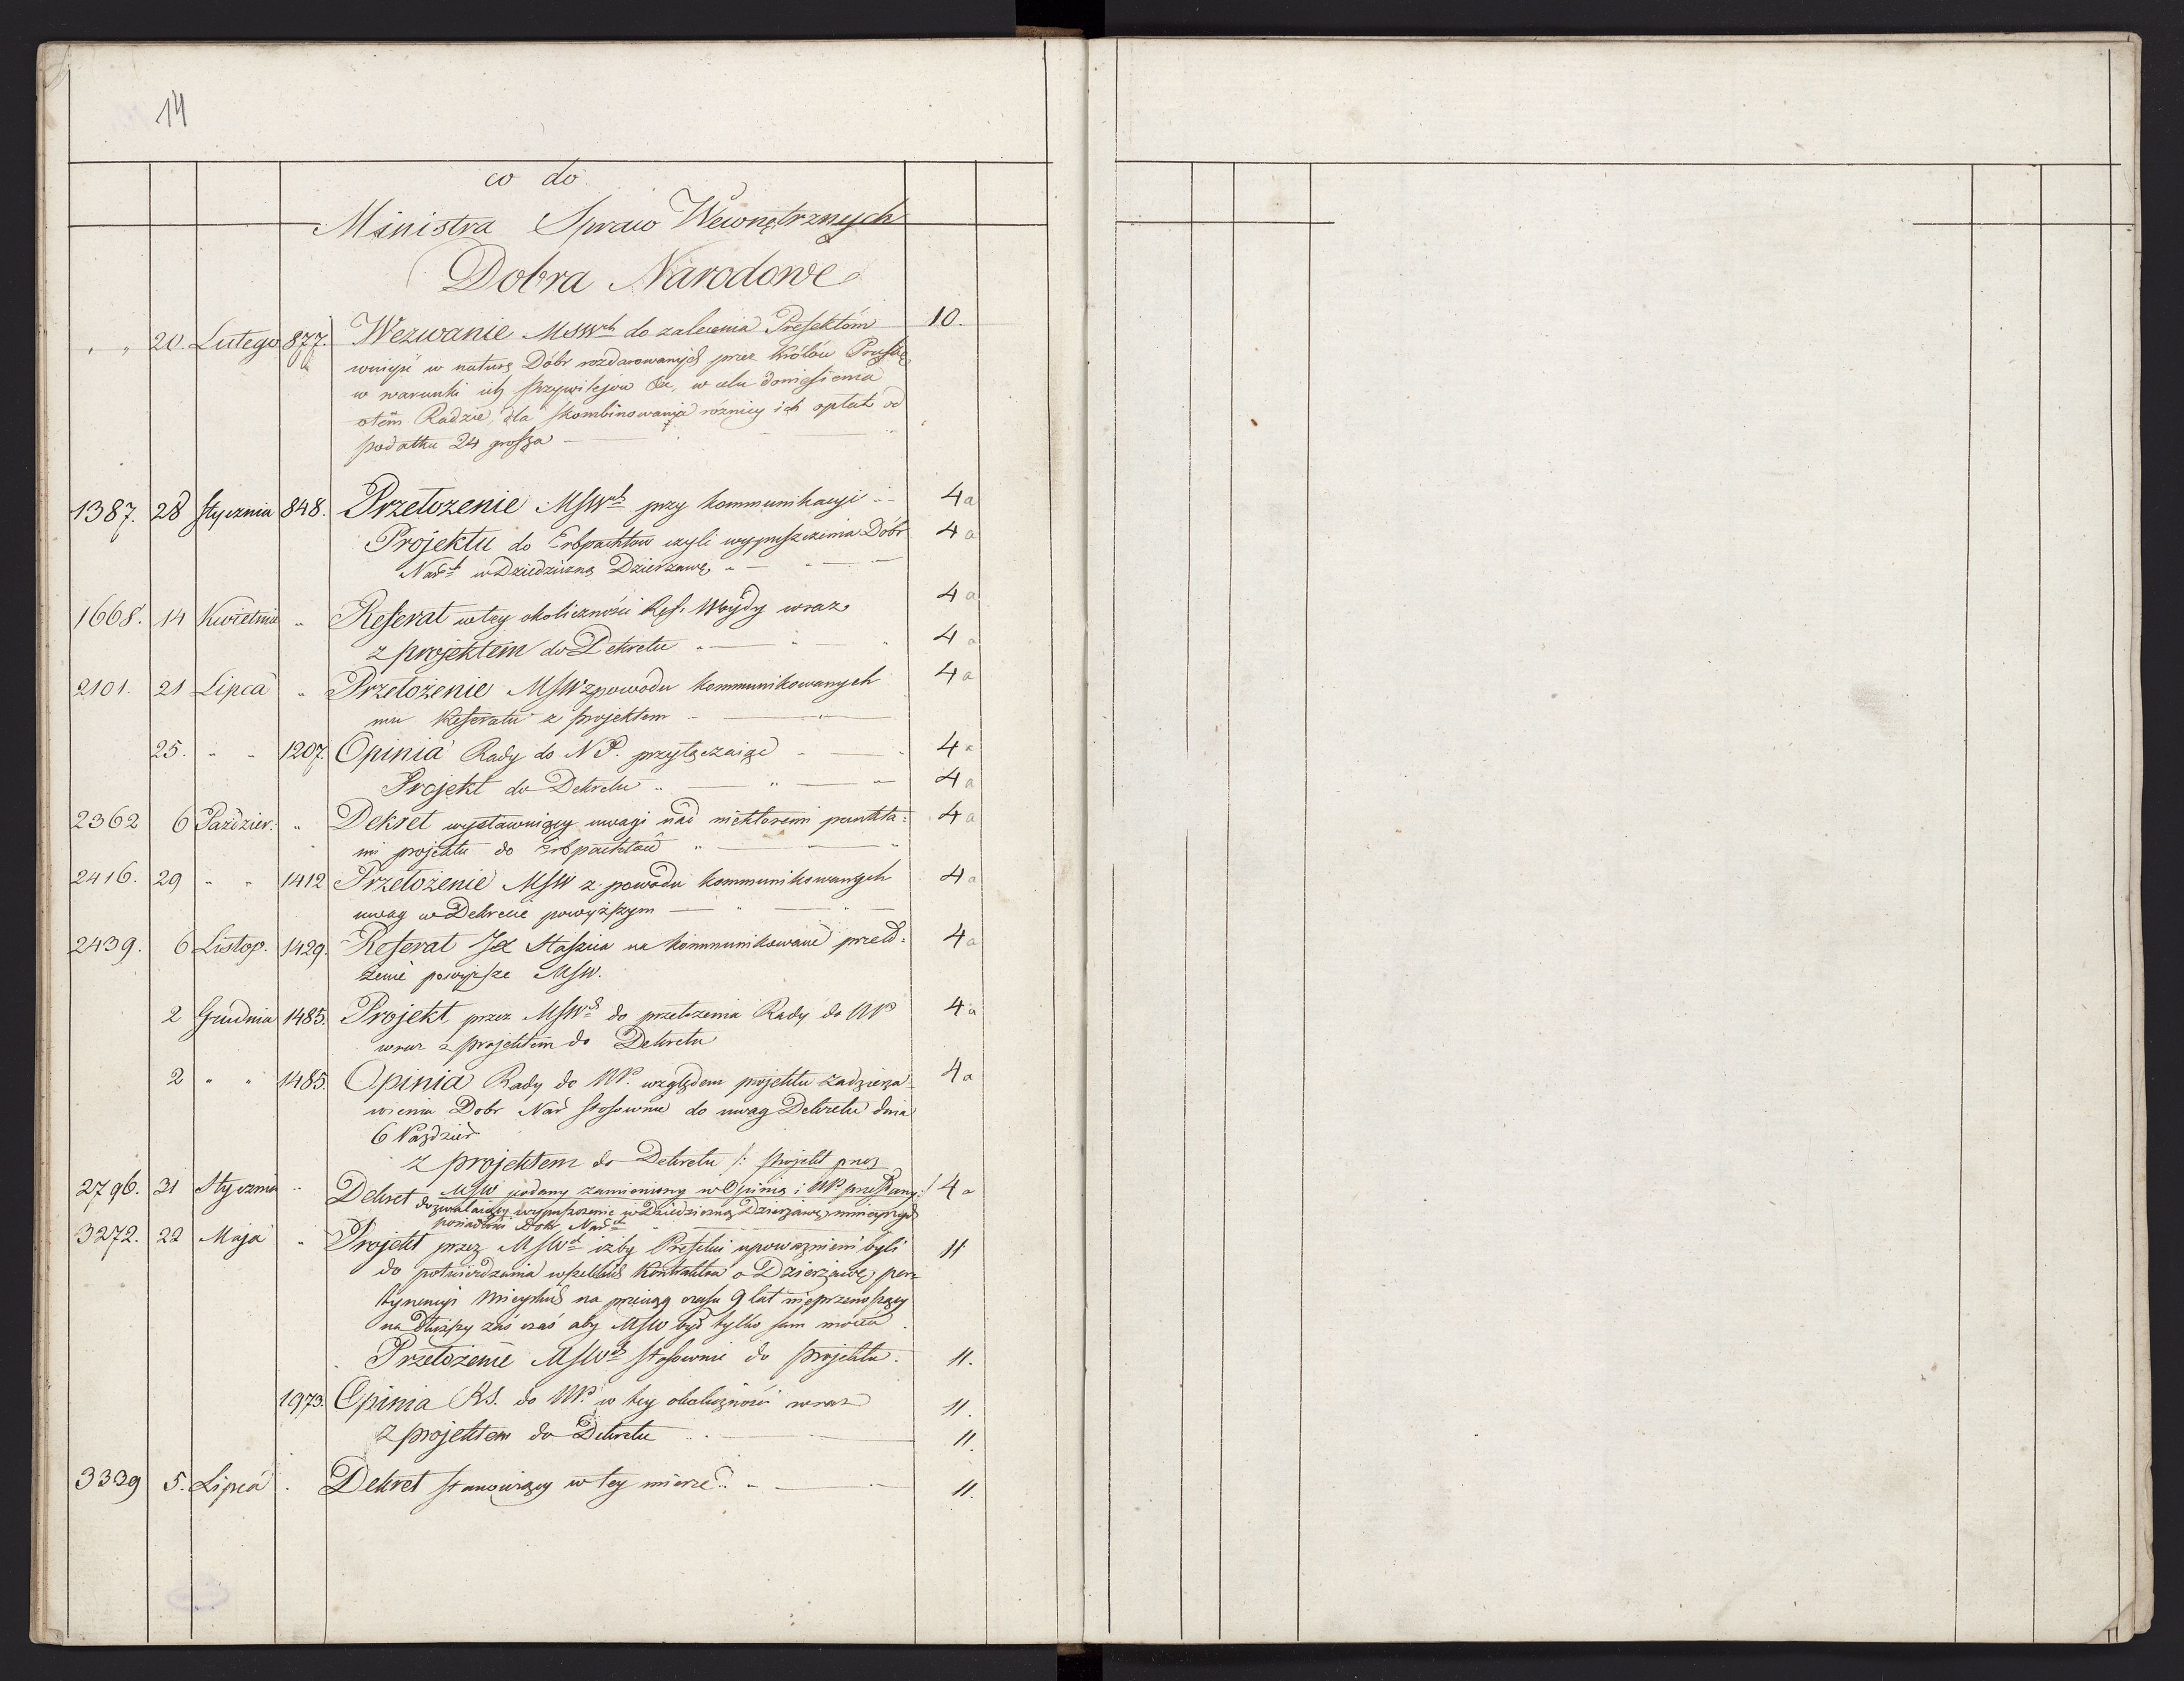 14
co do
Ministra Spraw Wewnętrznych
Dobra Narodowe
" " 20. Lutego 877. Wezwanie MSWch do zalecenia Prefektóm 10.
w naturę Dóbr rozdarowanych przez Królów Pruskich
w warunki ich przywilejów &c, w celu doniesienia
otém Radzie, dla skombinowania różnicy ich opłat od
podatku 24 grosza
1387. 28 Stycznia 848. Przełożenie MSWch przy kommunikacyi 4a
Projektu do Erbpachtów czyli wypuszczenia Dóbr 4a
Narch w Dziedziczną Dzierzawę
1668. 14 Kwietnia " Referat w tey okoliczności Ref. Woydy wraz 4a
z projektem do Dekretu 4a
2101. 21 Lipca " Przełożenie MSW z powodu kommunikowanych 4a
mu Referatu z projektem
25. " " 1207. Opinia Rady do NP. przyłączaiąc 4a
Projekt do Dekretu 4a
2362 6 Paździer. " Dekret wystawuiący uwagi nad niektóremi punkta= 4a
mi projektu do Erbpachtów
2416. 29 " " 1412 Przełożenie MSW z powodu kommunikowanych 4a
uwag w Dekrecie powyższym
2439. 6 Listop. 1429. Referat JX Staszica na kommunikowane przeło= 4a
żenie powyższe MSW.
2 Grudnia 1485. Projekt przez MSWch do przełożenia Rady do NP 4a
wraz z projektem do Dekretu
2 " " 1485. Opinia Rady do NP. względem projektu zadzierza= 4a
wienia Dobr Nar stosownie do uwag Dekretu dnia
6 Paździer
z projektem do Dekretu /: projekt przez
2796. 31 Stycznia " MSW podany zamieniony w Opinią i NP. przesłany :/ 4a
Dekret dozwalaiący wypuszczenie w Dziedziczną Dzierzawę mnieyszych
posiadłości Dobr Narch
3272. 22 Maja " Projekt przez MSWch iżby Prefekci upoważnieni byli 11
do potwierdzania wszelkich Kontraktów o Dzierżawę per=
tynencyi Mieyskich na przeciąg czasu 9 lat nieprzenoszący
na dłuższy zaś czas aby MSW był tylko sam mocen
Przełożenie MSWch stosownie do projektu. 11.
1973. Opinia RS. do NP. w tey okoliczności wraz 11.
z projektem do Dekretu 11.
3339 5. Lipca . Dekret stanowiący w tey mierze 11.